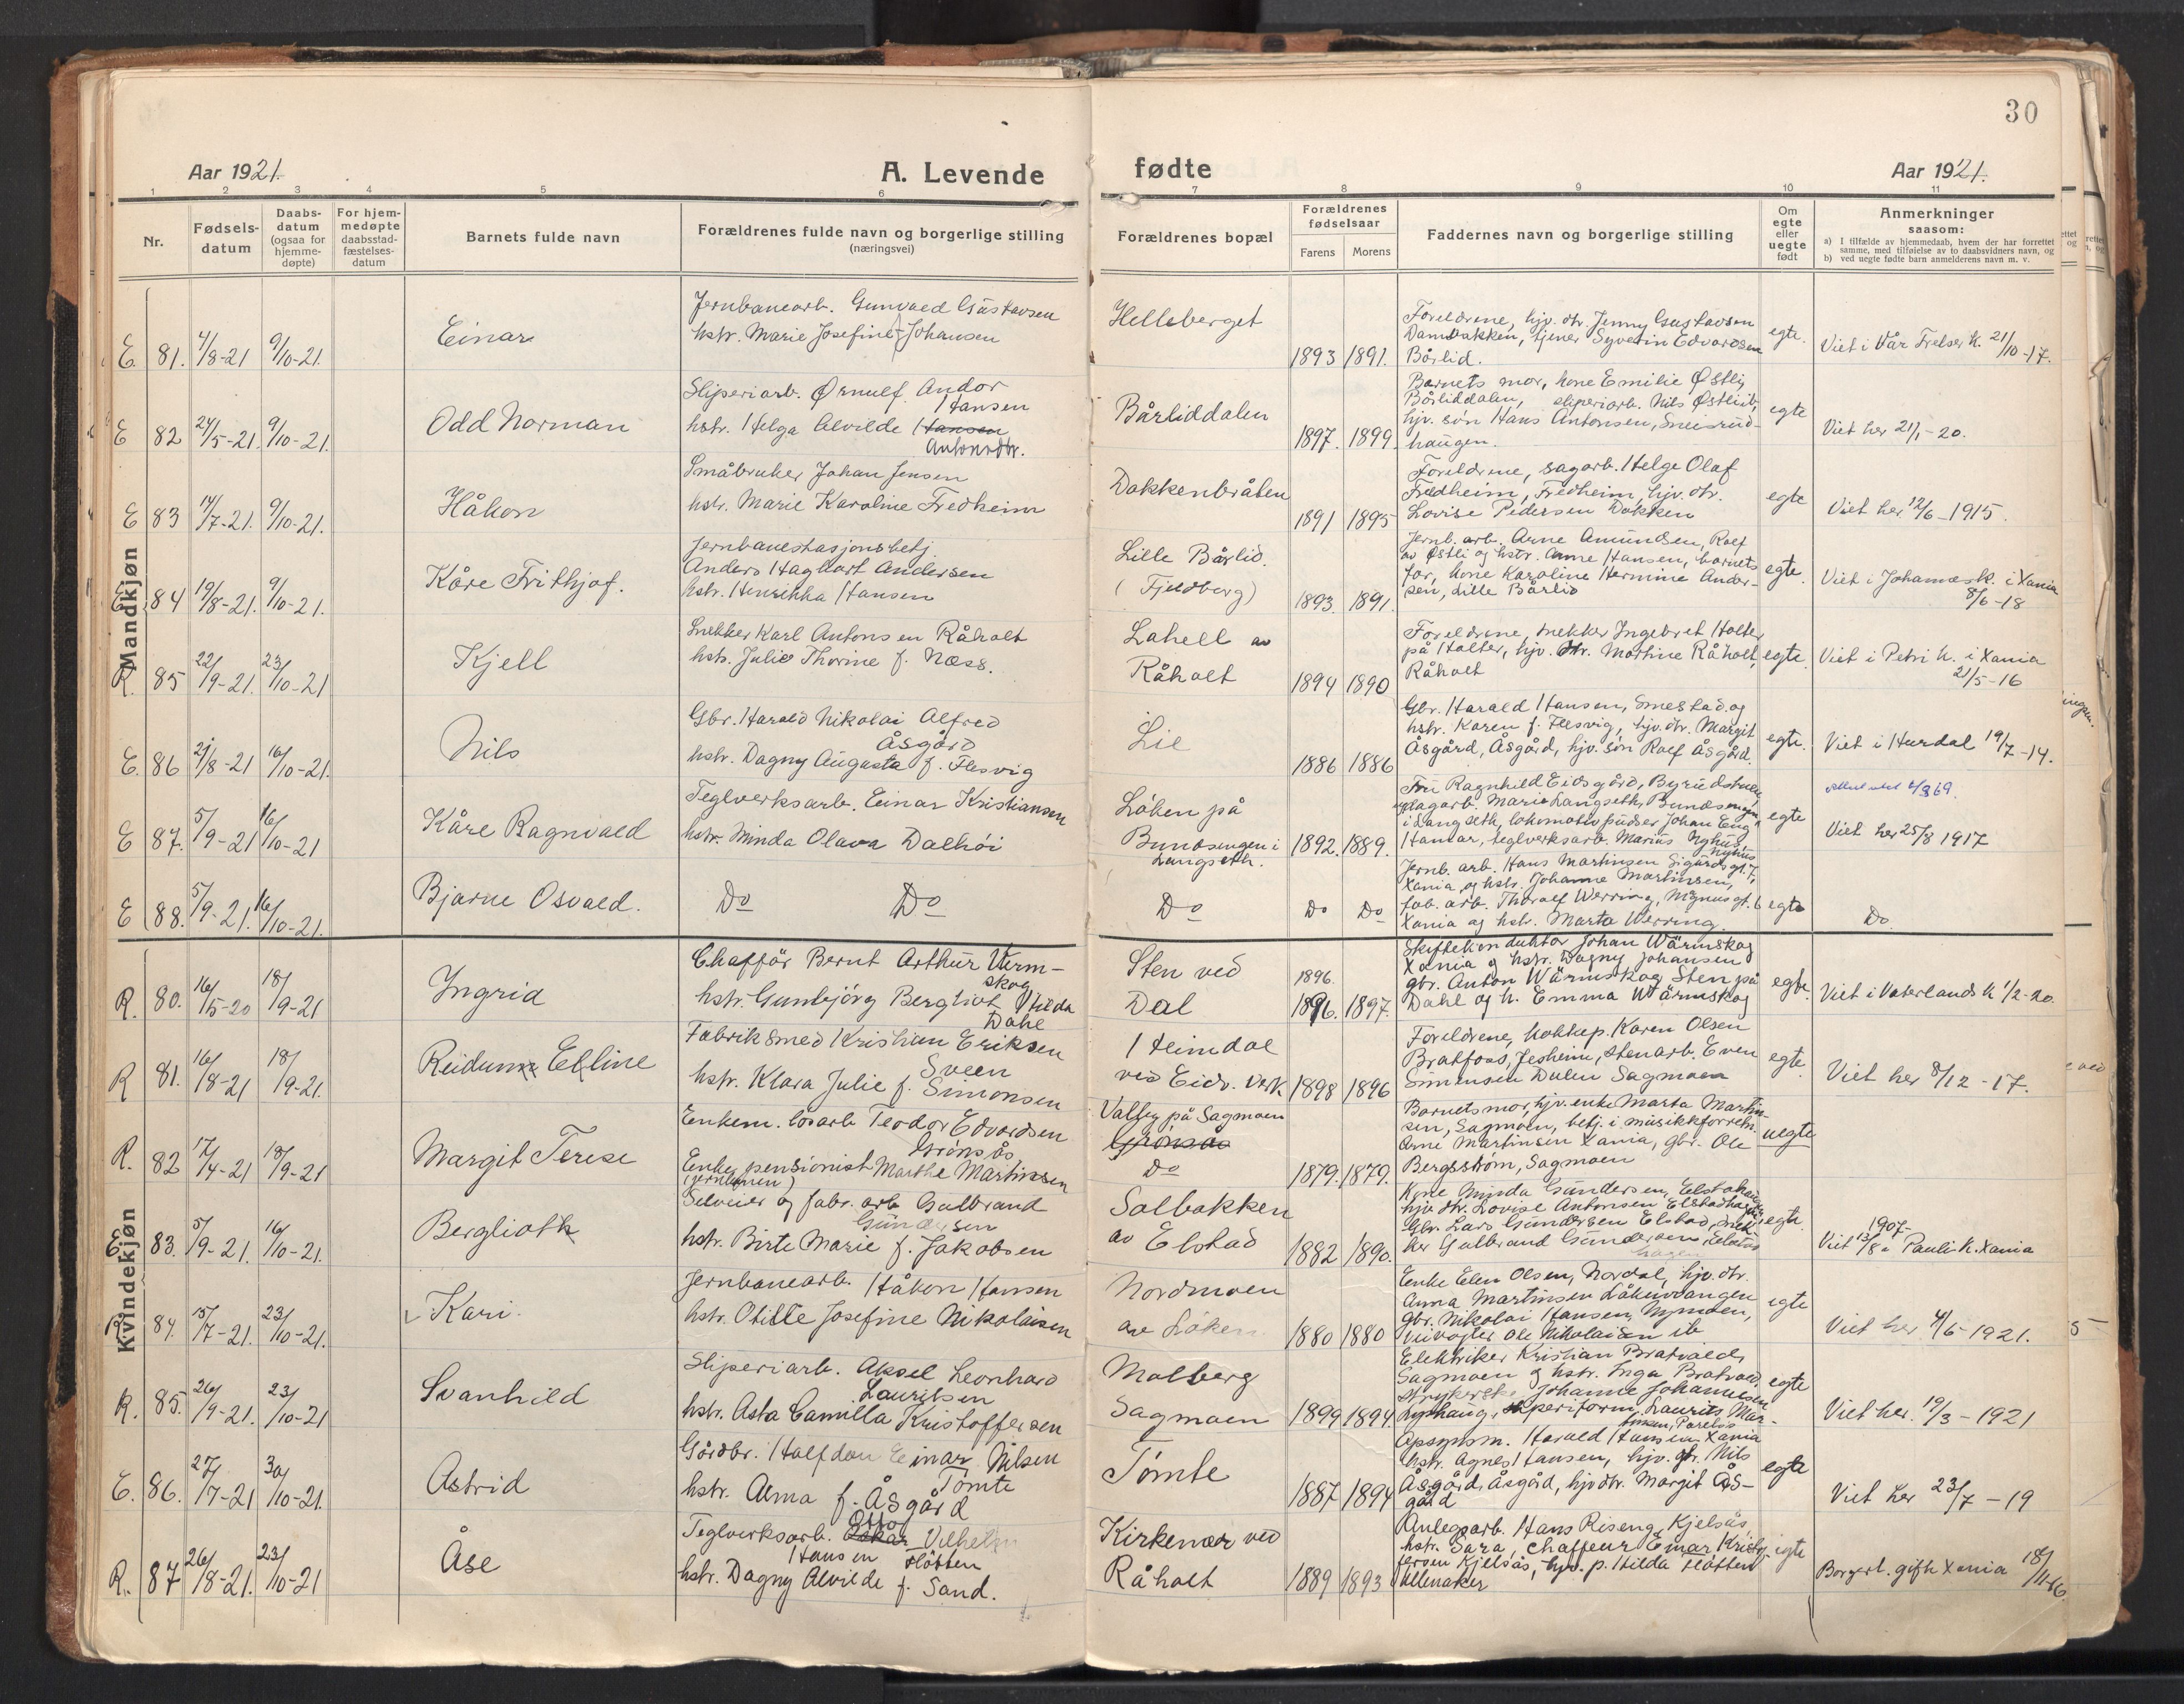 30
Aar 1921.
A. Levende
fødte
Aar 1921.
1 2 3 4 5 6 7 8 9 10 11
Nr.
Fødsels-
datum
Daabs-
datum
(ogsaa for
hjemme-
døpte)
For hjem-
medøpte
daabsstad-
fæstelses-
datum
Barnets fulde navn
Forældrenes fulde navn og borgerlige stilling
(næringsvei)
Forældrenes bopæl
Forældrenes
fødselsaar
Farens
Morens
Faddernes navn og borgerlige stilling
Om
egte
eller
uegte
født
Anmerkninger
saasom:
a) I tilfælde av hjemmedaab, hvem der har forrettet
samme, med tilføielse av to daabsvidners navn, og
b) ved uegte fødte barn anmelderens navn m. v.
Mandkjøn
E. 81. 4/8-21 9/10-21.
Einar
Jernbanearb. Gunvald Gustavsen
hstr. Marie Josefine Johansen
Helleberget
1893 1891.
Foreldrene, hjv. dtr. Jenny Gustavsen
Dambakken, tjener Syverin Edvardsen
Bårlid.
egte.
Viet i Vår Frelser K. 21/10-17.
E 82 24/5-21. 9/10-21.
Odd Norman
Sliperiarb. Ørnulf Andor
Hansen
hstr. Helga Alvilde Hansen
Antonsdtr.
Bårliddalen
1897. 1899.
Barnets mor, kone Emilie Østli,
Bårliddalen, sliperiarb. Nils Østlib,
hjv. søn Hans Antonsen, Sneisrud-
haugen.
egte
Viet her 21/1-20.
E 83 14/7-21. 9/10-21.
Håkon
Småbruker Johan Jensen
hstr. Marie Karoline Fredheim
Dokkenbråten
1891 1895
Foreldrene, sagarb. Helge Olaf
Fredheim, Fredheim, hjv. dtr.
Lovise Pedersen Dokken
egte
Viet her 12/6-1915.
E. 84 19/8-21. 9/10-21.
Kåre Frithjof.
Jernbanestasjonsbetj.
Anders Hagbart Andersen
hstr. Henrikka Hansen
Lille Bårlid.
(Fjeldberg)
1893. 1891.
Jernb. arb. Arne Amundsen, Rolf
av Østli og hstr. Anne Hansen, barnets
far, kone Karoline Hermine Ander-
sen, Lille Bårlid
egte.
Viet i Johannesk. i Xania
8/6-18
R. 85 22/9-21. 23/10-21
Kjell
Snekker Karl Antonsen Råholt
hstr. Julie Thorine f. Næss.
Lahell av
Råholt
1894 1890
Foreldrene, snekker Ingebret Holter
på Holter, hjv. dtr. Martine Råholt,
Råholt
egte.
Viet i Petri k. i Xania
21/5-16
E. 86 21/8-21 16/10-21.
Nils
Gbr. Harald Nikolai Alfred
Åsgård
hstr. Dagny Augusta f. Flesvig
Lie
1886 1886
Gbr. Harald Hansen, Smestad og
hstr. Karen f. Flesvig, hjv. dtr. Margit
Åsgård, Åsgård, hjv. søn Rolf Åsgård.
egte.
Viet i Hurdal 19/7-14.
E 87. 5/9-21 16/10-21
Kåre Ragnvald
Teglverksarb. Einar Kristiansen
hstr. Minda Olava Dalhöi
Løken på
Bundsengen i
Langseth.
1892. 1889.
Fru Ragnhild Eidsgård,
dagarb. Marie Langseth, Bundsengen
i Langseth, lokomotivpudser Johan Eng
Hamar, teglverksarb. Marius Nyhus,
Nyhus
egte
Viet her 25/8 1917
E 88. 5/9-21. 16/10-21.
Bjarne Osvald.
Do Do
Do
Do Do
Jernb. arb. Hans Martinsen Sigurdsgt. 7,
Xania, og hstr. Johanne Martinsen,
fab. arb. Thoralf Werring, Magnusgt. 6
Xania og hstr. Marta Werring.
egte
Do.
Kvindekjøn
R. 80. 16/5-20 18/9-21
Ingrid
Chaffør Bernt Arthur Værm-
skog
hstr. Gunbjørg Bergliot Hilda
Dahl
Sten ved
Dal
1896.
1896. 1897.
Skiftekonduktør Johan Wärmskog
Xania og hstr. Dagny Johansen
gbr. Anton Wärmskog, Sten på
Dahl og h. Emma Wärmskog
egte.
Viet i Vaterlands k 1/2-20.
R 81. 16/8-21 18/9-21.
Reidunn Elline
Fabriksmed Kristian Eriksen
Sveen
hstr. Klara Julie f. Simonsen
Heimdal
ved Eidv. verk
1898 1896
Foreldrene, Koktep. Karen Olsen
Bratfoss, Jesheim, stenarb. Even
Simensen Dalen Sagmoen
egte.
Viet her 8/12-17.
R. 82 17/4-21 18/9-21
Margit Terese
Enkem. løsarb Teodor Edvardsen
Grønsås
Enke, pensionist Marthe Martinsen
Valby på Sagmoen
Grønsås
Do
1879. 1879.
Barnets mor, hjv. enke Marta Martin-
sen, Sagmoen, betj. i musikkforretn.
Arne Martinsen Xania, gbr. Ole
Bergsstrøm, Sagmoen
uegte
E. 83. 5/9-21. 16/10-21.
Bergliot
Selveier og fabr. arb Gulbrand
Gundersen
hstr. Birte Marie f. Jakobsen
Solbakken
av Elstad
1882 1890.
Kone Minda Gundersen, Elstadhagen
hjv. dtr. Lovise Antonsen Elstadhagen
Gbr. Lars Gundersen Elstad, snek-
ker Gulbrand Gundersen, Elstad
hagen
egte.
1907-
Viet 13/8 i Pauli k. Xania
R 84. 15/7-21. 23/10-21.
Kari.
Jernbanearb. Håkon Hansen
hstr. Otille Josefine Nikolaisen
Nordmoen
av Løken
1880 1880
Enke Elen Olsen, Nordal, hjv. dtr.
Anna Martinsen Løkenvangen
Gbr. Nikolai Hansen, Nymoen,
Veivogter Ole Nikolaisen ib
egte
Viet her 4/6-1921.
R. 85. 26/9-21. 23/10-21
Svanhild
Sliperiarb. Aksel Leonhard
Lauritsen
hstr. Asta Camilla Kristoffersen
Molberg
Sagmoen
1899 1894.
Elektriker Kristian Bratvold,
Sagmoen og hstr. Inga Bratvold,
strykerske Johanne Johannesen
Lyshaug, sliperiform. Laurits Mar-
egte
Viet her. 19/3-1921
E. 86. 27/7-21 30/10-21.
Astrid
Gårdbr. Halfdan Einar Nilsen
Tømte
hstr. Alma f. Åsgård
Tømte
1887 1894
Opsynsm. Harald Hansen Xania
hstr. Agnes Hansen, hjv. gbr. Nils
Åsgård, Åsgård, hjv dtr. Margit Ås-
gård
egte
Viet her 23/7-19
R. 87 26/8-21. 23/10-21
Åse
Teglverksarb. Otto Vilhelm
Hansen Holtten
hstr. Dagny Alvilde f. Sand.
Kirkenær ved
Råholt
1889 1893
Anlegsarb. Hans Riseng, Kjelsås,
hstr. Sara, chaffeur Einar Kristof-
fersen Kjelsås, hjv. p. Hilda Holtten
Ullenaker
egte
Borgerl. gift Xania 18/11-16